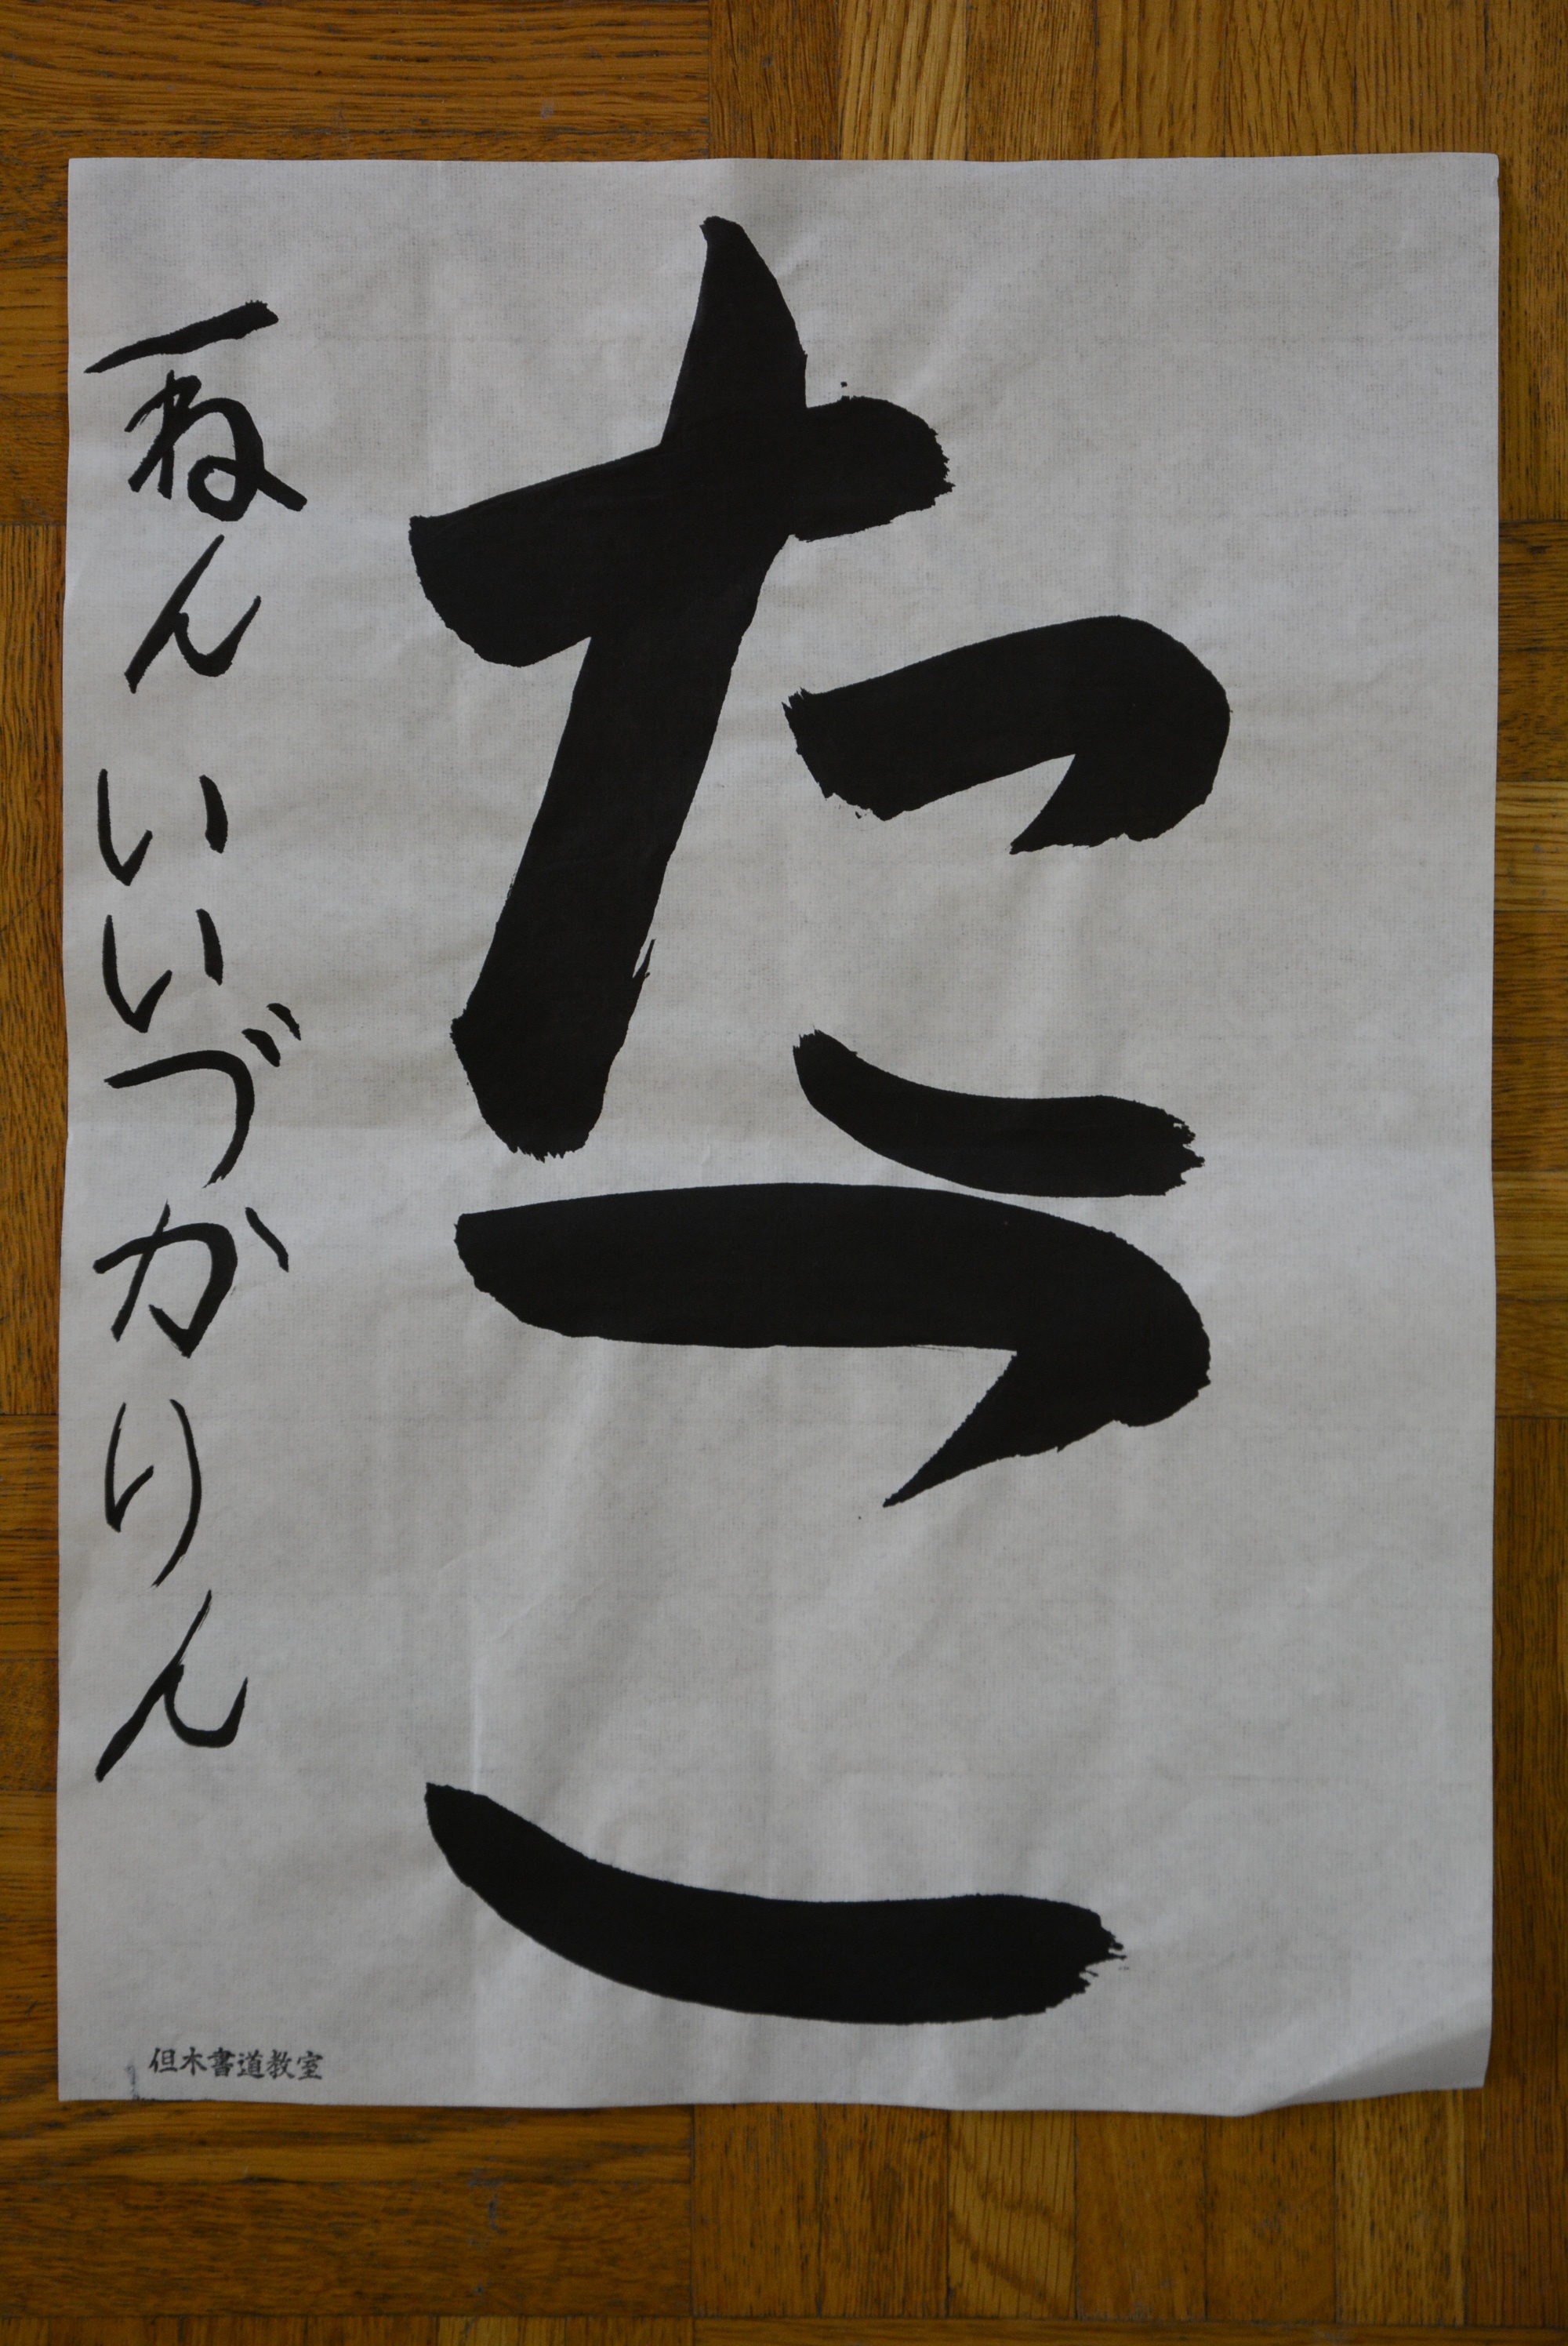 たこ
一ねん いいづかりん
但木書道教室